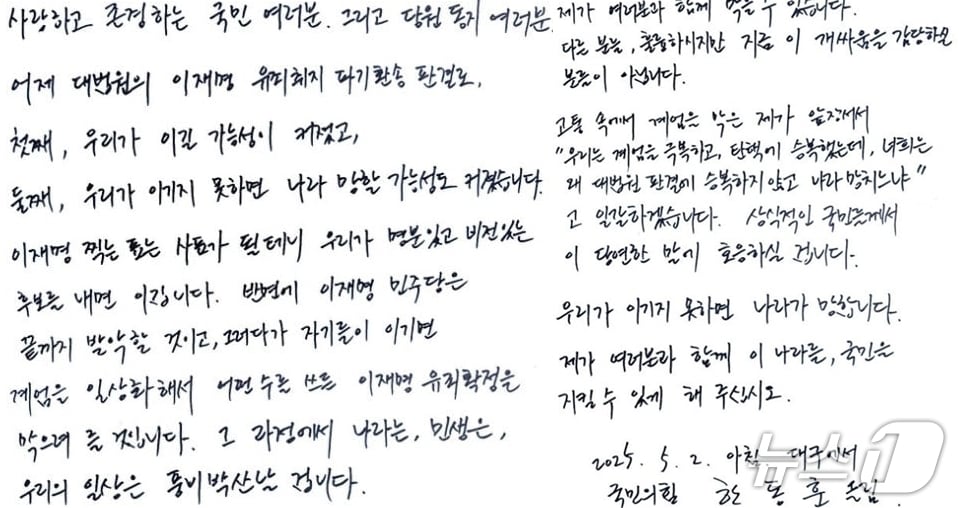 사랑하고 존경하는 국민 여러분. 그리고 당원 동지 여러분.
어제 대법원의 이재명 유죄취지 파기환송 판결로,
첫째, 우리가 이길 가능성이 커졌고,
둘째, 우리가 이기지 못하면 나라 망할 가능성도 커졌습니다.
이재명 찍는 표는 사표가 될테니 우리가 명분있고 비전있는
후보를 내면 이깁니다. 반면에 이재명 민주당은
끝까지 발악할 것이고, 그러다가 자기들이 이기면
계엄을 일상화해서 어떤 수를 쓰든 이재명 유죄확정을
막으려 들 것입니다. 그 과정에서 나라는, 민생은,
우리의 일상은 풍비박산날 겁니다.
제가 여러분과 함께 막을 수 있습니다.
다른 분들, 훌륭하시지만 지금 이 개싸움을 감당하실
분들이 아닙니다.
고통 속에서 계엄을 막은 제가 앞장서서
"우리는 계엄을 극복하고, 탄핵에 승복했는데, 너희는
왜 대법원 판결에 승복하지 않고 나라 망치느냐"
고 일갈하겠습니다. 상식적인 국민들께서
이 당연한 말에 호응하실 겁니다.
우리가 이기지 못하면 나라가 망합니다.
제가 여러분과 함께 이 나라를, 국민을
지킬 수 있게 해 주십시오.
2025. 5. 2. 아침 대구에서
국민의힘 한동훈 올림.
뉴스1